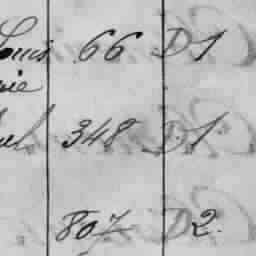 Louis 66 D1
rie
348 D1
807 D2.